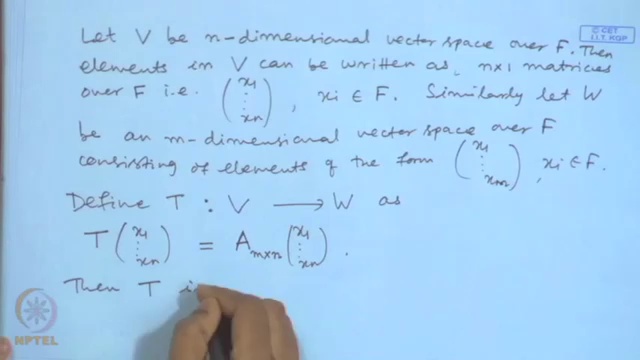 © CET
I.I.T. KGP
Let V be n-dimensional vector space over F. Then
elements in V can be written as, n×1 matricies
over F i.e. (x1 ⋮ xn), xi ∈ F. Similarly let W
be an m-dimensional vector space over F
consisting of elements of the form (x1 ⋮ xm), xi ∈ F.
Define T : V ⟶ W as
T(x1 ⋮ xn) = Am×n(x1 ⋮ xn).
Then T i
NPTEL